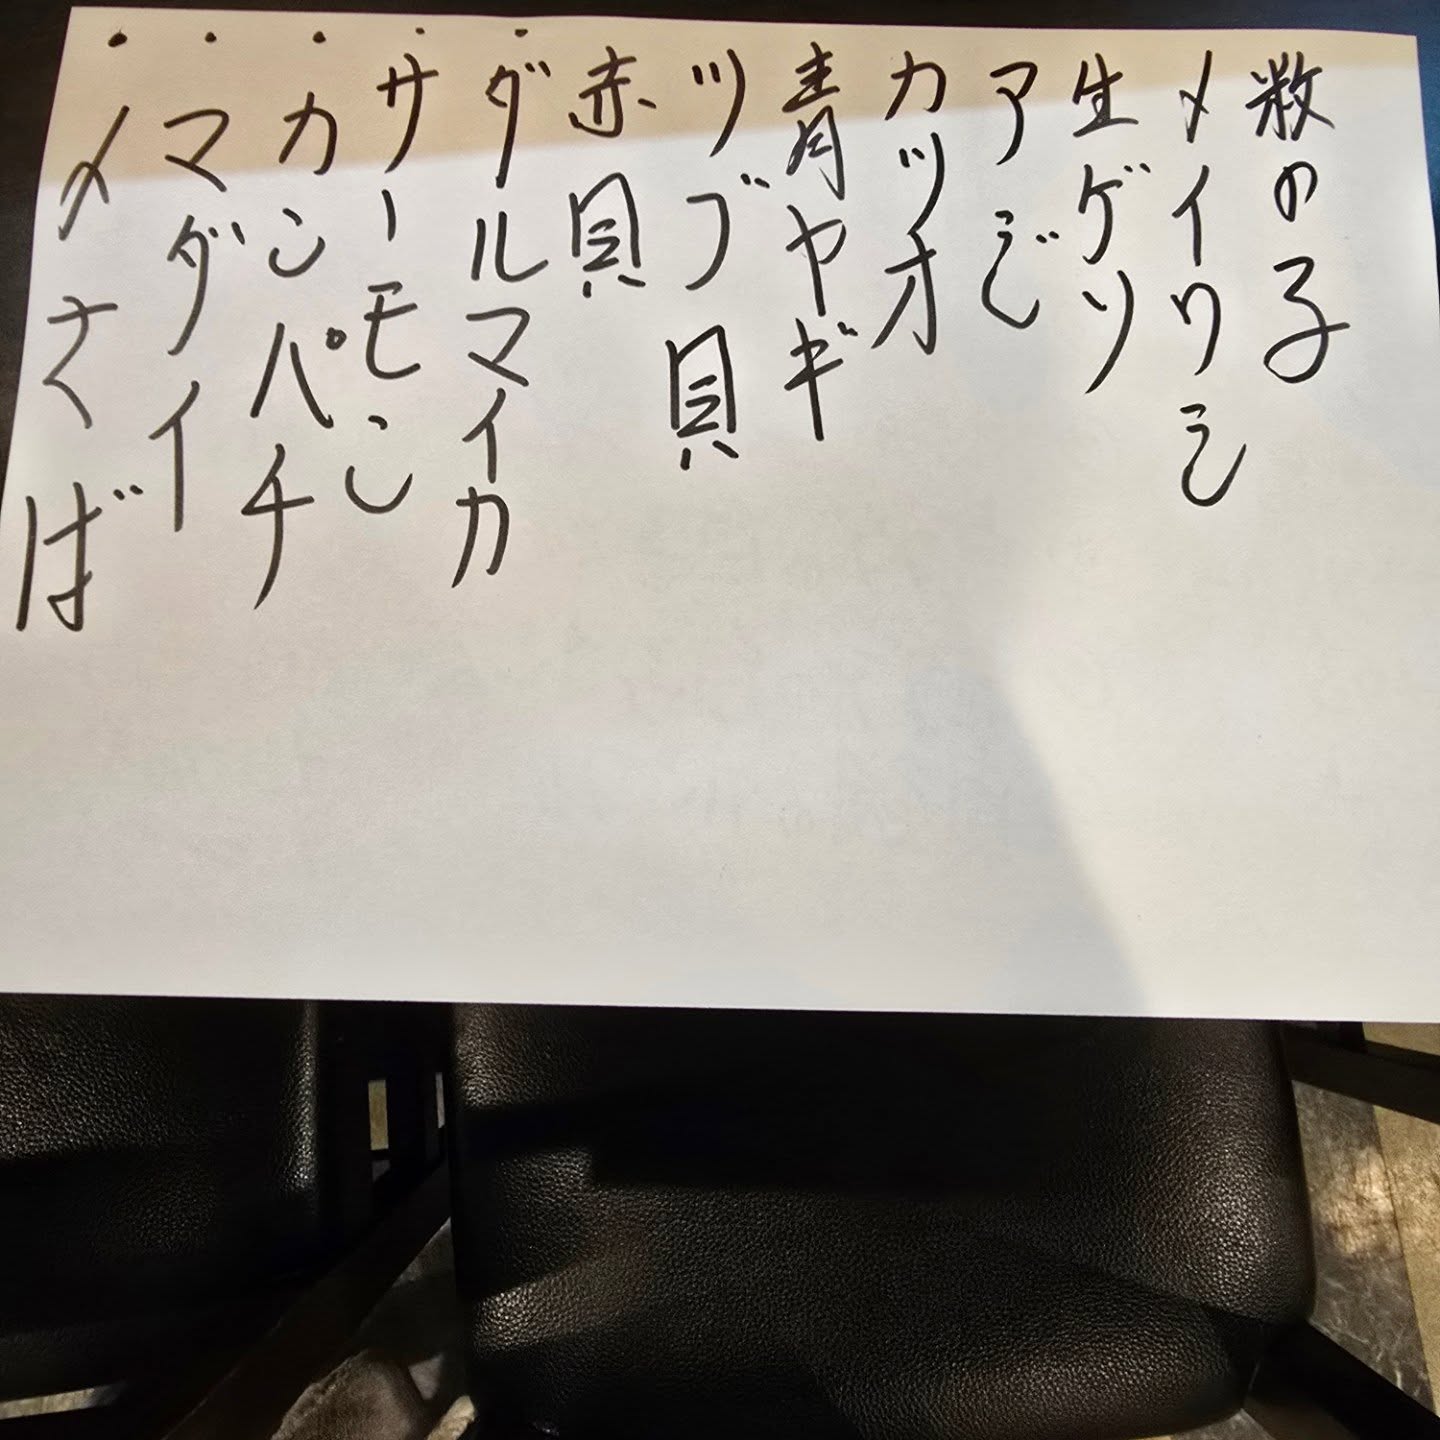 数の子
〆イワシ
生ゲソ
アジ
カツオ
青ヤギ
ツブ貝
赤貝
・ダルマイカ
・サーモン
・カンパチ
・マダイ
・〆さば